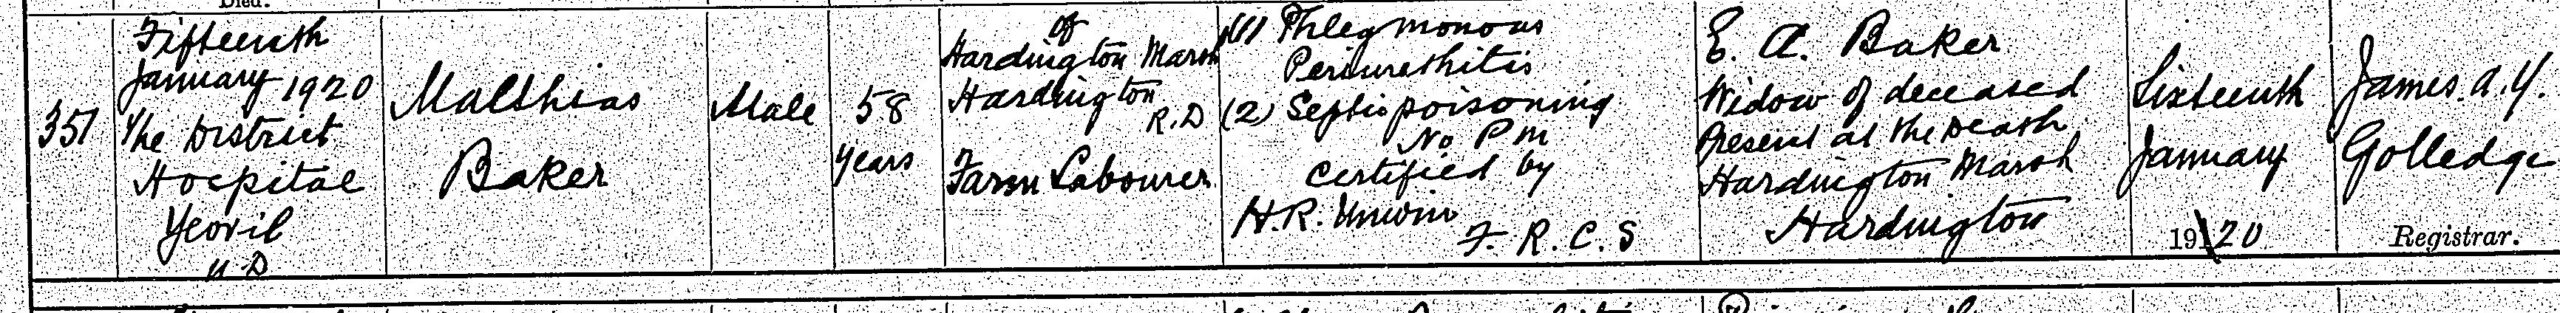 Died.
351
Fifteenth
January 1920
The District
Hospital
Yeovil
U.D
Matthias
Baker
Male
58
years
of
Hardington Marsh
Hardington
R.D
Farm Labourer
(1) Phlegmonous
Periurethitis
(2) Septic poisoning
No P m
Certified by
H.R. Unwin
F.R.C.S
E. A. Baker
Widow of deceased
Present at the Death
Hardington Marsh
Hardington
Sixteenth
January
1920
James. A. Y.
Golledge
Registrar.